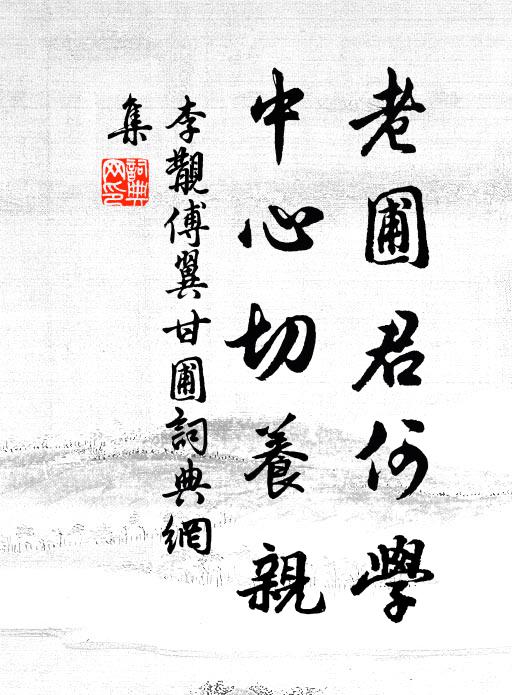 老圃君何學
中心切養親
李觀傅翼甘圃詞典網
集
詞典網印